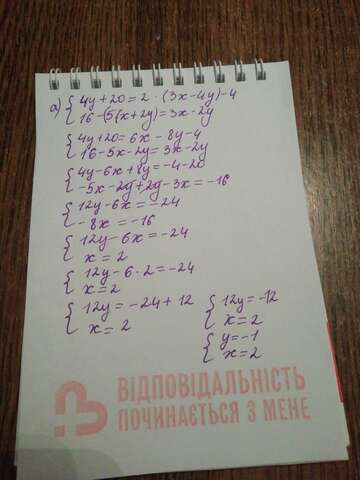 а) { 4y + 20 = 2 · (3x - 4y) - 4
16 - (5x + 2y) = 3x - 2y
{ 4y + 20 = 6x - 8y - 4
16 - 5x - 2y = 3x - 2y
{ 4y - 6x + 8y = -4 - 20
-5x - 2y + 2y - 3x = -16
{ 12y - 6x = -24
-8x = -16
{ 12y - 6x = -24
x = 2
{ 12y - 6 · 2 = -24
x = 2
{ 12y = -24 + 12
x = 2
{ 12y = -12
x = 2
{ y = -1
x = 2
ВІДПОВІДАЛЬНІСТЬ
ПОЧИНАЄТЬСЯ З МЕНЕ